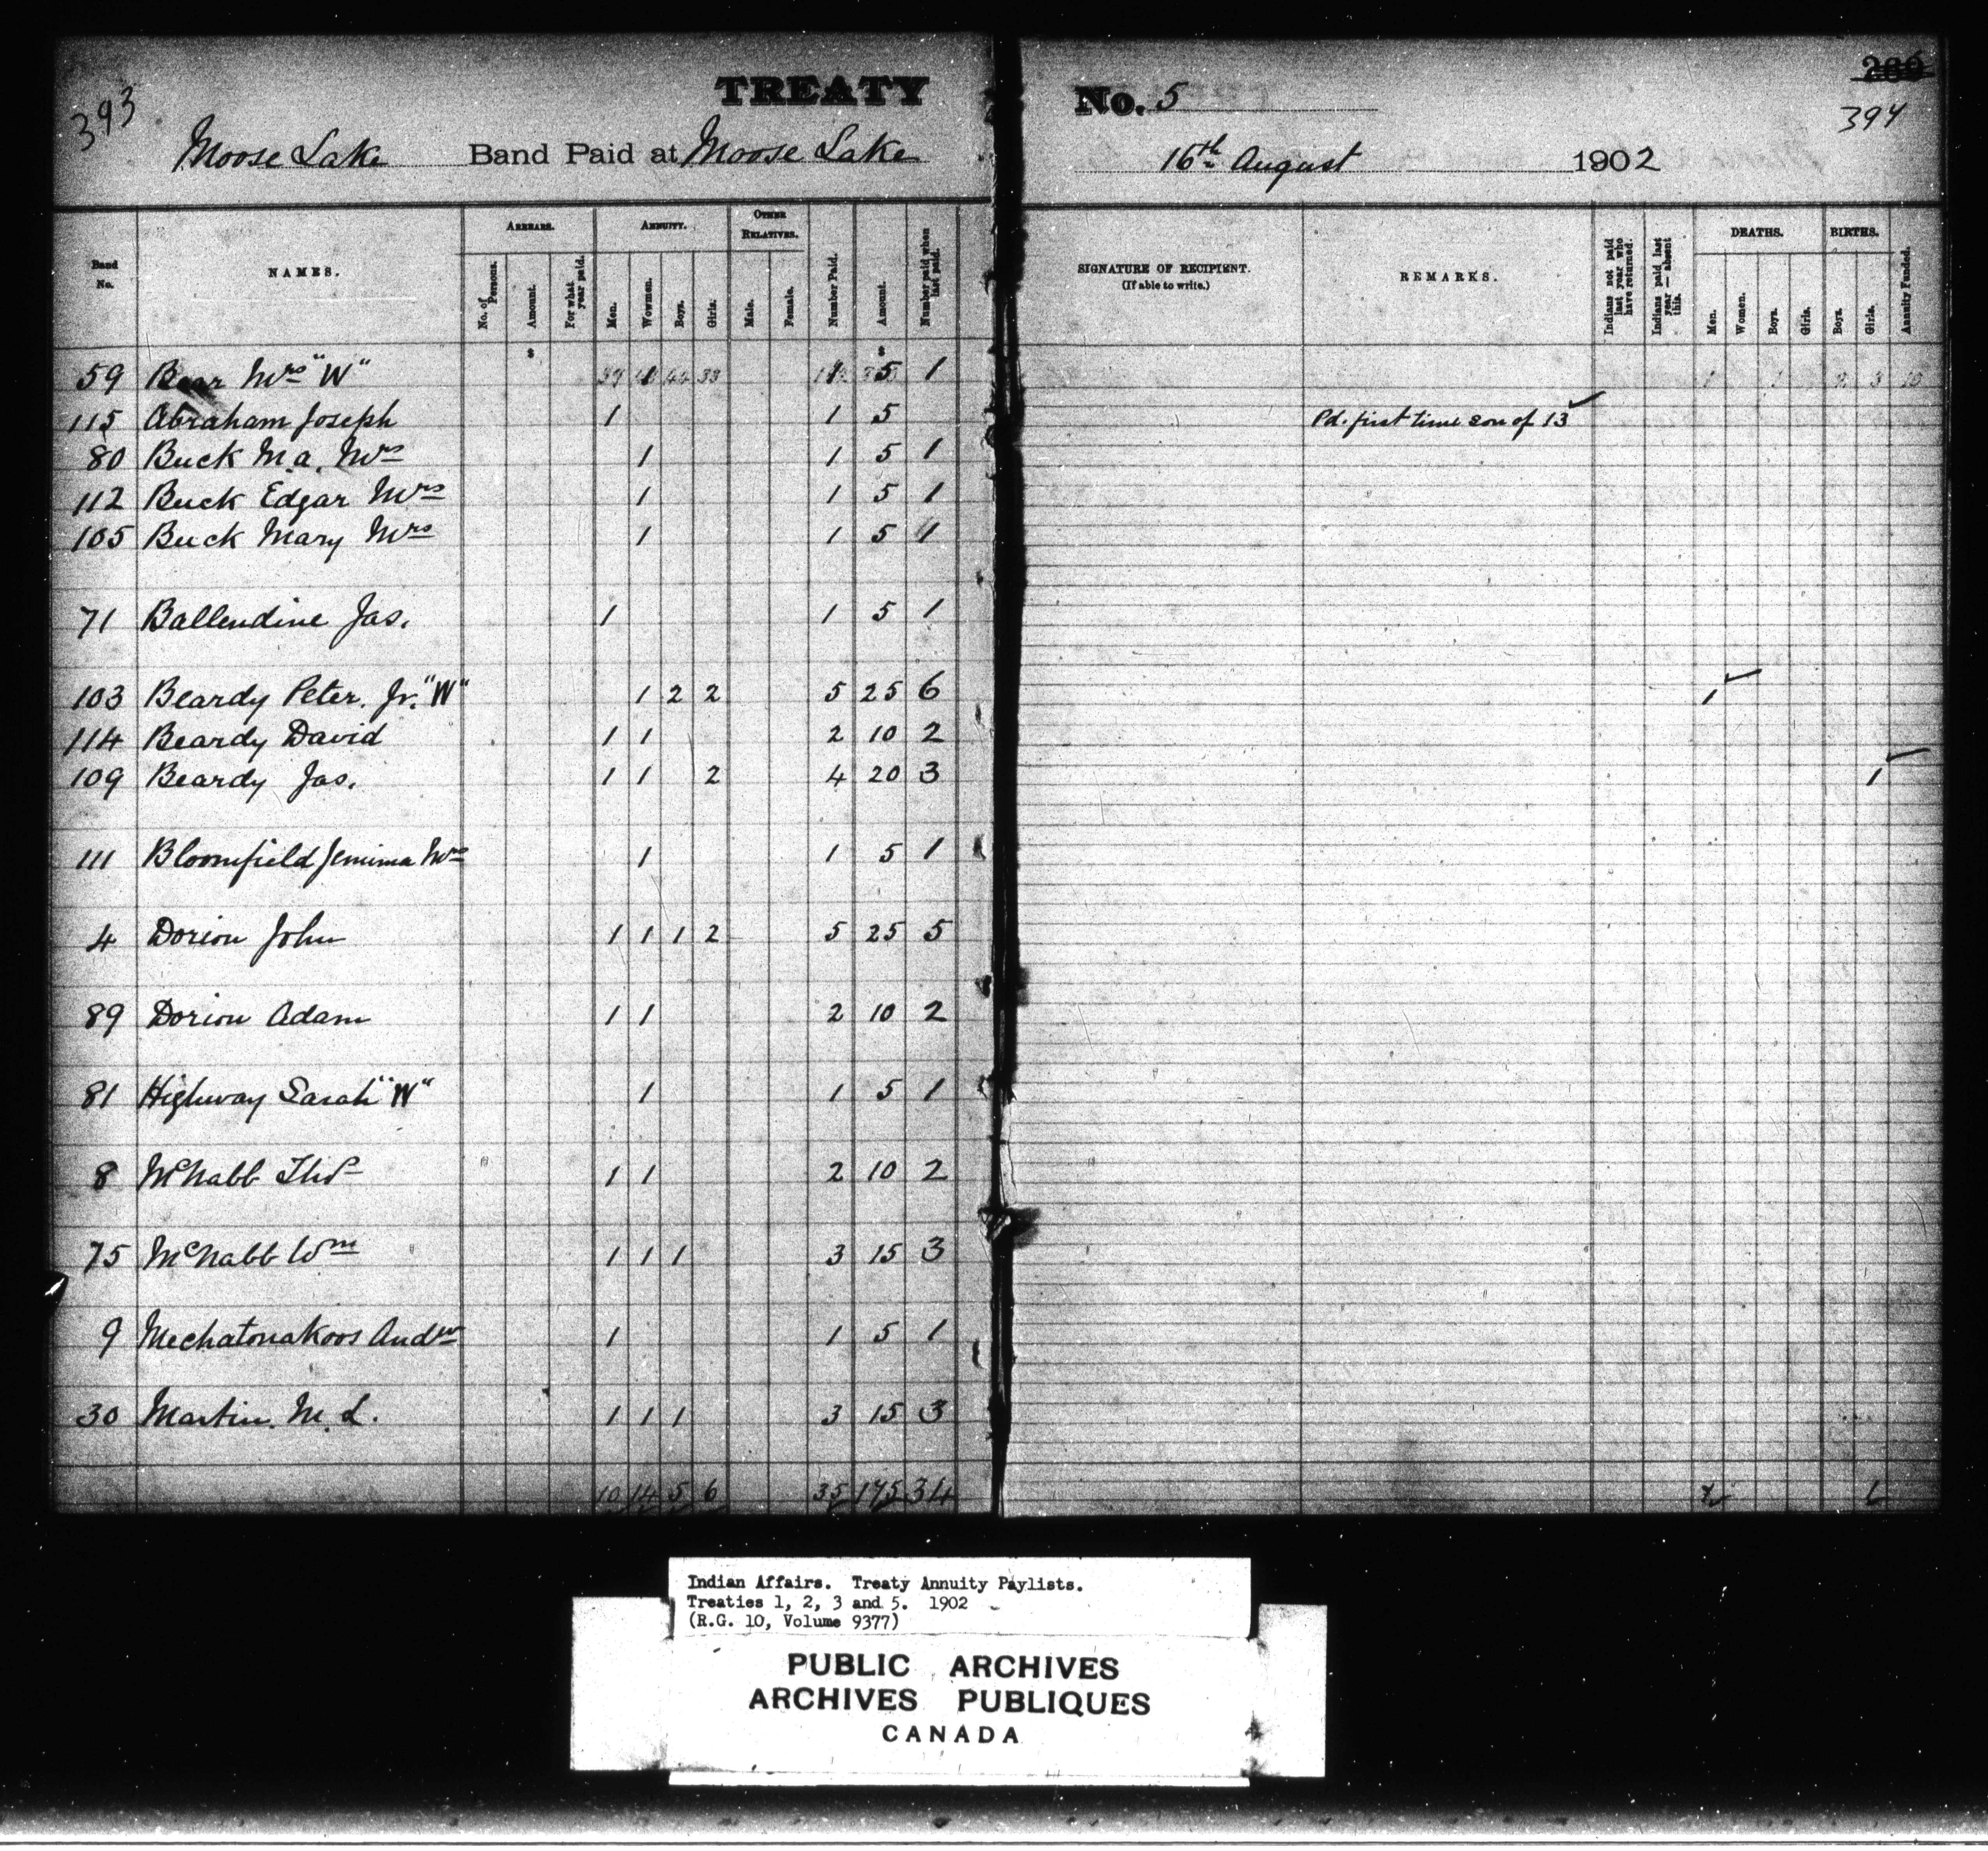 393
TREATY
No. 5
286
394
Moose Lake Band Paid at Moose Lake
16th August 1902
Band No.
NAMES.
ARREARS.
No. of Persons.
Amount.
For what year paid.
ANNUITY.
Men.
Women.
Boys.
Girls.
OTHER RELATIVES.
Male.
Female.
Number Paid.
Amount.
Number paid when last paid.
SIGNATURE OF RECIPIENT.
(If able to write.)
REMARKS.
Indians not paid last year who have returned.
Indians paid last year — absent this.
DEATHS.
Men.
Women.
Boys.
Girls.
BIRTHS.
Boys.
Girls.
Annuity Funded.
$ $
59 Bear Mrs "W" 1 1 5 1
115 Abraham Joseph 1 1 5 Pd. first time son of 13
80 Buck M.a. Mrs 1 1 5 1
112 Buck Edgar Mrs 1 1 5 1
105 Buck Mary Mrs 1 1 5 1
71 Ballendine Jas. 1 1 5 1
103 Beardy Peter. Jr. "W" 1 2 2 5 25 6 1
114 Beardy David 1 1 2 10 2
109 Beardy Jas. 1 1 2 4 20 3 1
111 Bloomfield Jemima Mrs 1 1 5 1
4 Dorion John 1 1 1 2 5 25 5
89 Dorion Adam 1 1 2 10 2
81 Highway Sarah "W" 1 1 5 1
8 McNabb Thos 1 1 2 10 2
75 McNabb Wm 1 1 1 3 15 3
9 Mechatonakoos Andw 1 1 5 1
30 Martin. M. L. 1 1 1 3 15 3
10 14 5 6 35 175 34 1 1
Indian Affairs. Treaty Annuity Paylists.
Treaties 1, 2, 3 and 5. 1902
(R.G. 10, Volume 9377)
PUBLIC ARCHIVES
ARCHIVES PUBLIQUES
CANADA